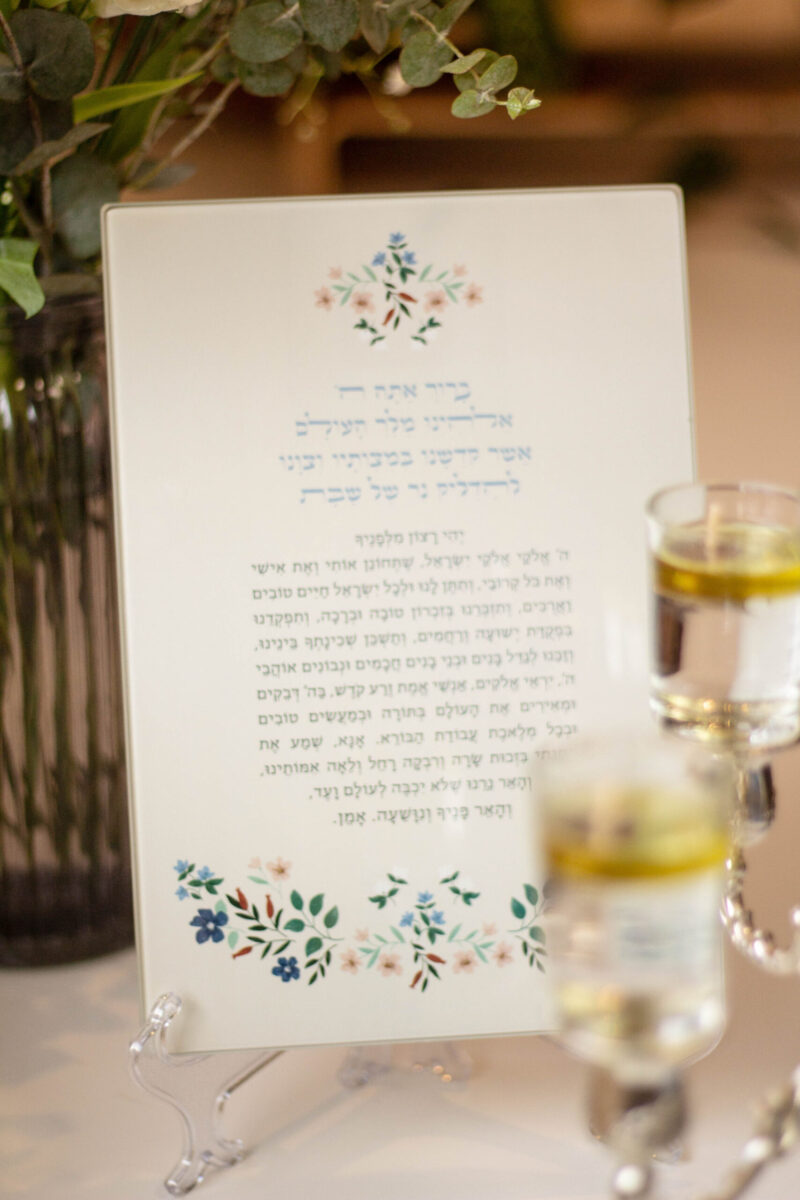 ברוך אתה ה'
אלוהינו מלך העולם
אשר קדשנו במצותיו וצונו
להדליק נר של שבת
יְהִי רָצוֹן מִלְּפָנֶיךָ
ה' אֱלֹקַי אֱלֹקֵי יִשְׂרָאֵל, שֶׁתְּחוֹנֵן אוֹתִי וְאֶת אִישִׁי
וְאֶת כֹּל קְרוֹבַי, וְתִתֵּן לָנוּ וּלְכָל יִשְׂרָאֵל חַיִּים טוֹבִים
וַאֲרֻכִּים, וְתִזְכְּרֵנוּ בְּזִכְרוֹן טוֹבָה וּבְרָכָה, וְתִפְקְדֵנוּ
בִּפְקֻדַּת יְשׁוּעָה וְרַחֲמִים, וְתַשְׁכֵּן שְׁכִינָתְךָ בֵּינֵינוּ,
וְזַכֵּנוּ לְגַדֵּל בָּנִים וּבְנֵי בָנִים חֲכָמִים וּנְבוֹנִים אוֹהֲבֵי
ה', יִרְאֵי אֱלֹקִים, אַנְשֵׁי אֱמֶת זֶרַע קֹדֶשׁ, בַּה' דְּבֵקִים
וּמְאִירִים אֶת הָעוֹלָם בְּתוֹרָה וּבְמַעֲשִׂים טוֹבִים
וּבְכָל מְלֶאכֶת עֲבוֹדַת הַבּוֹרֵא. אָנָּא, שְׁמַע אֶת
בִּזְכוּת שָׂרָה וְרִבְקָה רָחֵל וְלֵאָה אִמּוֹתֵינוּ,
וְהָאֵר נֵרֵנוּ שֶׁלֹּא יִכְבֶּה לְעוֹלָם וָעֶד,
וְהָאֵר פָּנֶיךָ וְנִוָּשֵׁעָה. אָמֵן.